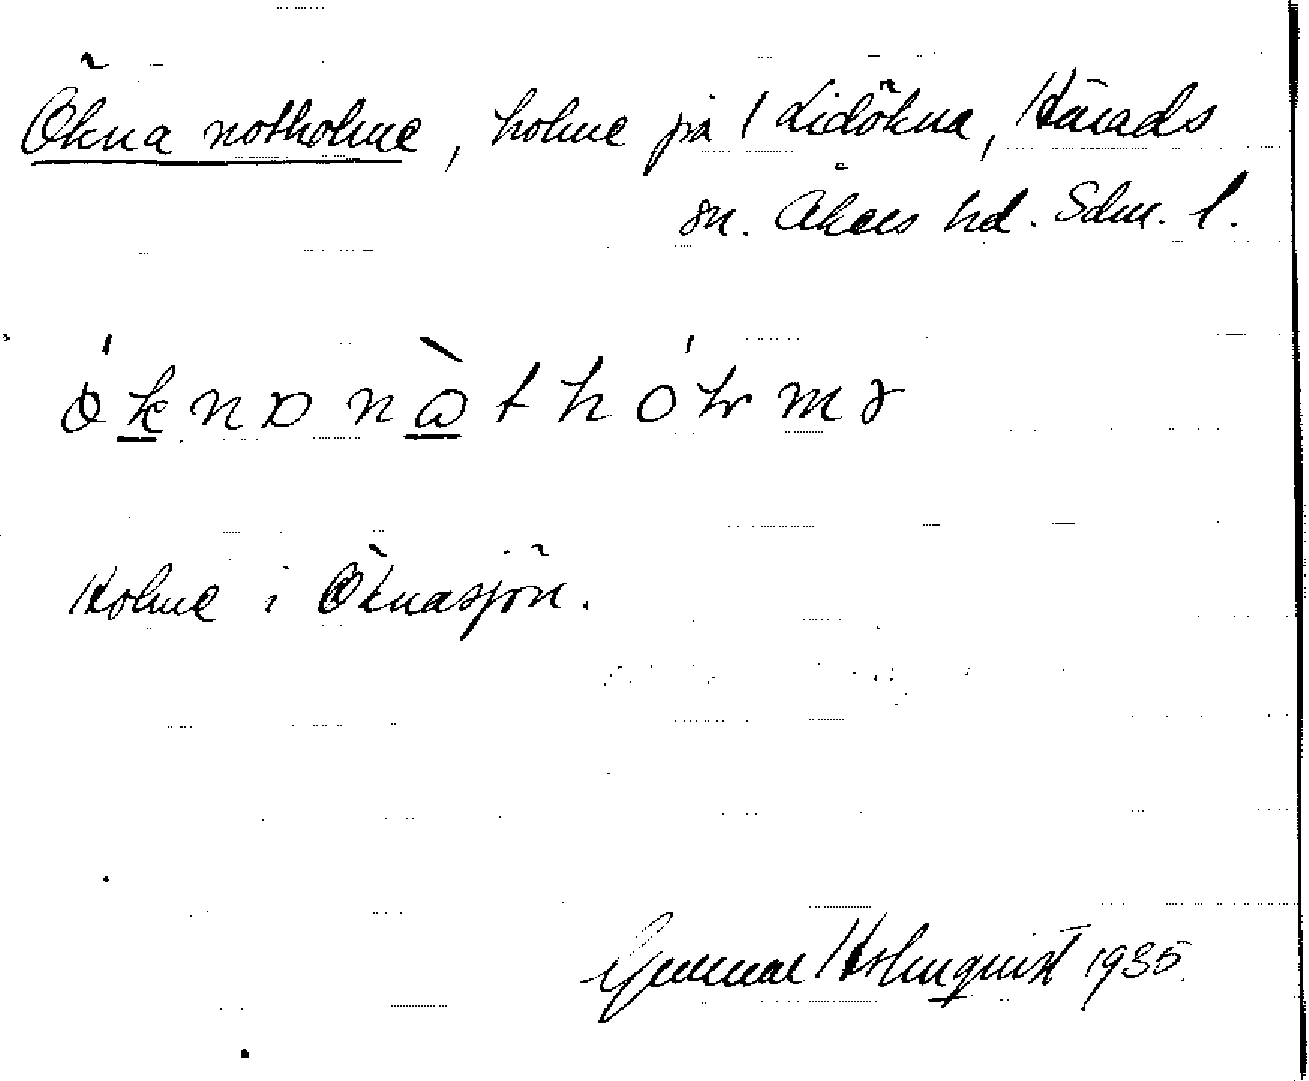 Ökna notholme, holme på 1 Lidökna, Härads
sn. Åkers hd. Sdm. l.
Holme i Öknasjön.
Gunnar Holmquist 1935